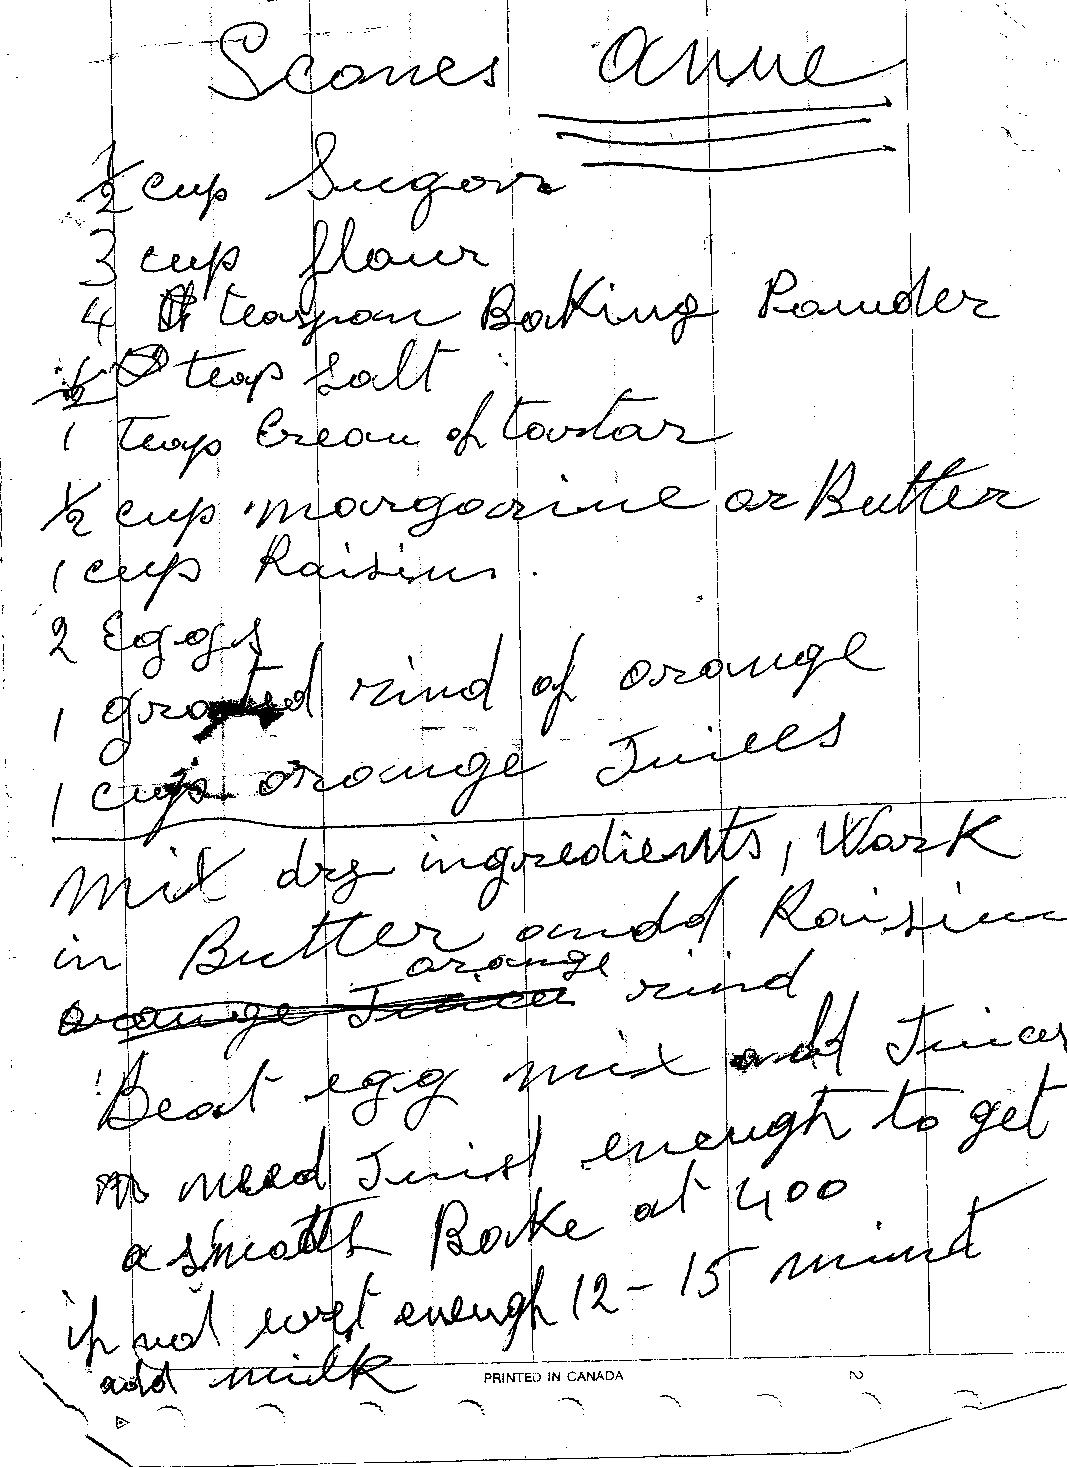 Scones Anne
1/2 cup Sugar
3 cup flour
4 teaspon Baking Pouder
1/2 teasp salt
1 teasp Cream of tartar
1/2 cup margarine or Butter
1 cup Raisins
2 Eggs
1 grated rind of orange
1 cup orange Juices
Mix dry ingredients, Work
in Butter andd Raisins
orange
orange Juice rind
Beat egg mix add Juices
need Juist enough to get
a smooth Bake at 400
if not wet enough 12-15 minut
add milk
PRINTED IN CANADA
2